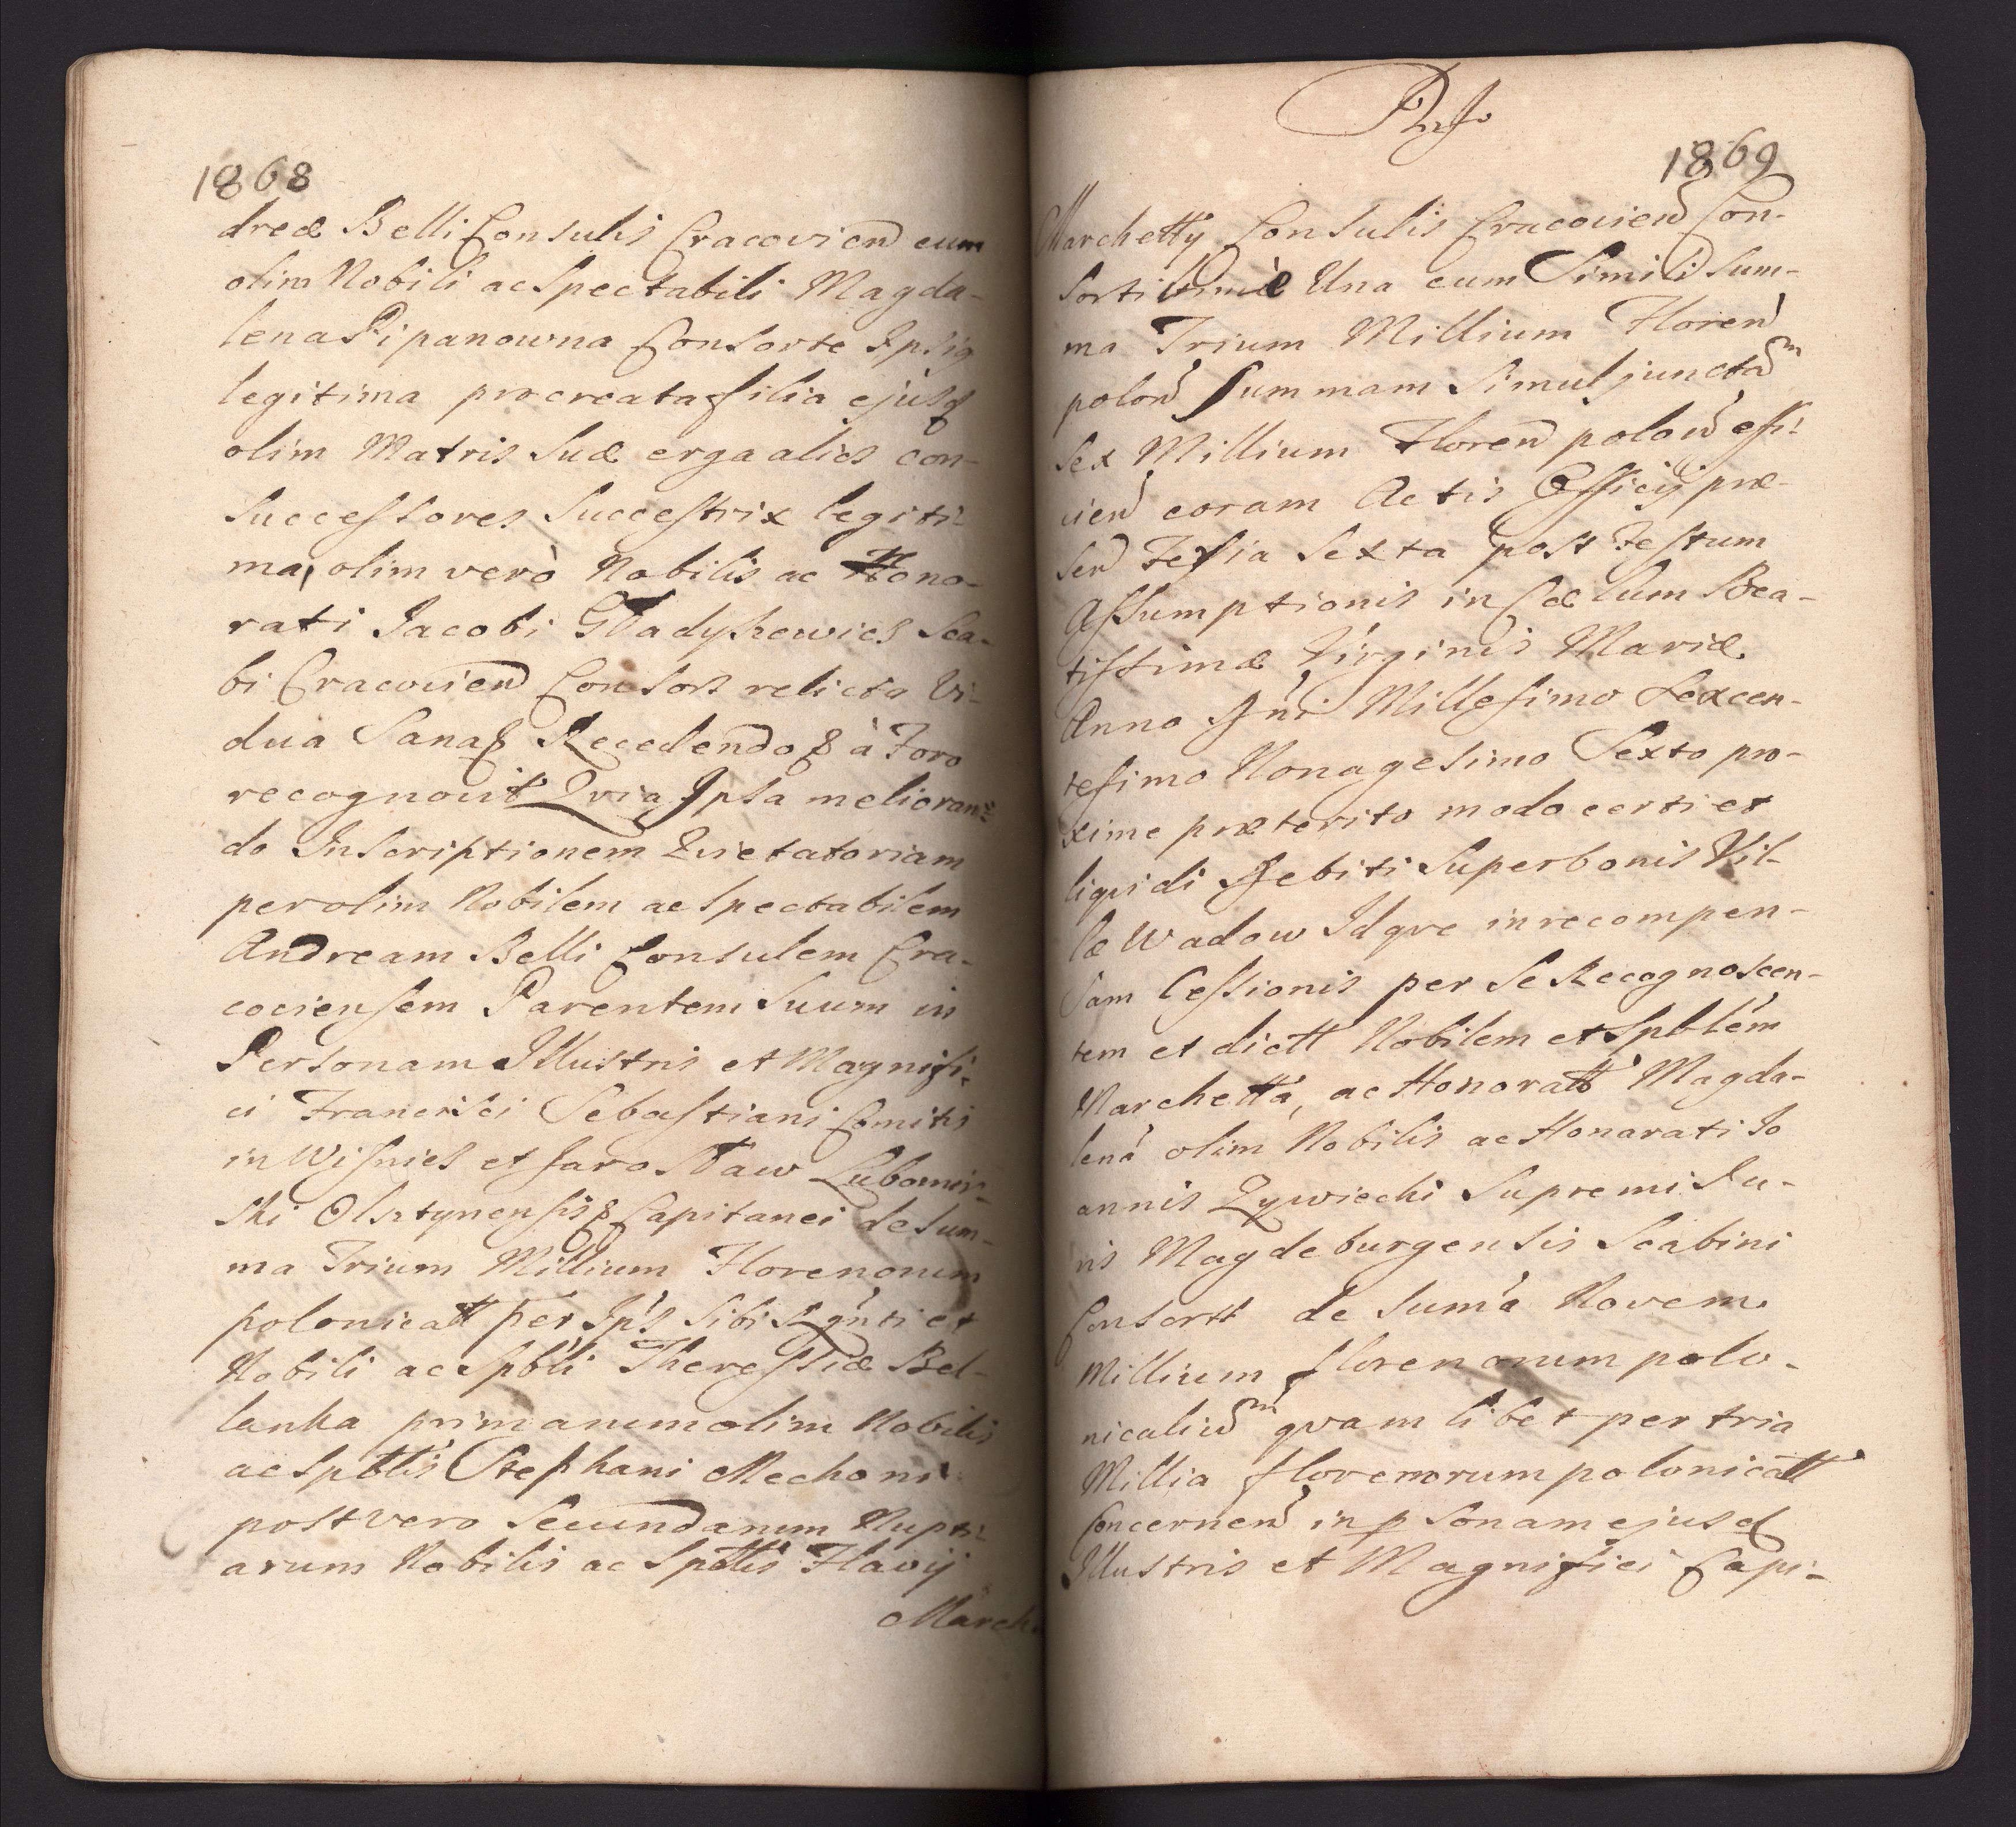 1868
dreæ Belli Consulis Cracovien eum
olim Nobili ac Spectabili Magda-
lena Ripanowna Consorte Ipsiq
legitima procreata filia ejusq
olim Matris Suæ erga alios con-
Successores Succestrix legiti-
ma, olim verò Nobilis ac Hono-
rati Jacobi Gładyszewics Sca-
bi Cracovien Consors relicta Vi-
dua Sanaq Recedendoq à Foro
recognovit Qvia Ipsa melioran-
do Inscriptionem Qvietatoriam
per olim Nobilem ac Spectabilem
Andream Belli Consulem Cra-
coviensem Parentem Suum in
Personam Illustris et Magnifi-
ci Francisci Sebastiani Comitis
in Wisnics et Jarosław Lubomir-
ski Olsztynensisq Capitanei de Sum-
ma Trium Millium Florenorum
polonicatt per Ips Sibi Rgnti et
Nobili ac Spbli Theressiæ Bel-
lanka primarum olim Nobilis
ac Spblis Stephani Mechoni
post vero Secundarum Nupti-
arum Nobilis ac Spttis Flavij
March
Pnſ.
1869
Marchetty Consulis Cracovien Con-
Sorti Una cum Simili Sum-
ma Trium Millium Floren
polon Summam Simul juncta m
Sex Millium Floren polon effi-
cien coram Actis Officij præ-
sen Feria Sexta post Festum
Assumptionis in Cælum Bea-
tissimæ Virginis Mariæ
Anno Dni Millesimo Sexcen-
tesimo Nonagesimo Sexto pro-
xime præterito modo certi et
liqvidi Debiti Super bonis Vil-
læ Wadow Idqve in recompen-
sam Cessionis per Se Recognoscen-
tem et dictt Nobilem et Spblem
Marchetta, ac Honoratt Magda-
lena olim Nobilis ac Honarati Jo
annis Zywiecki Supremi Ju-
ris Magdeburgensis Scabini
Consortt de Suma Novem
Millium florenorum polo-
nicaliu m qvamlibet per tria
Millia florenorum polonicatt
Concernen in p sonam ejusd
Illustris et Magnifici Capi-